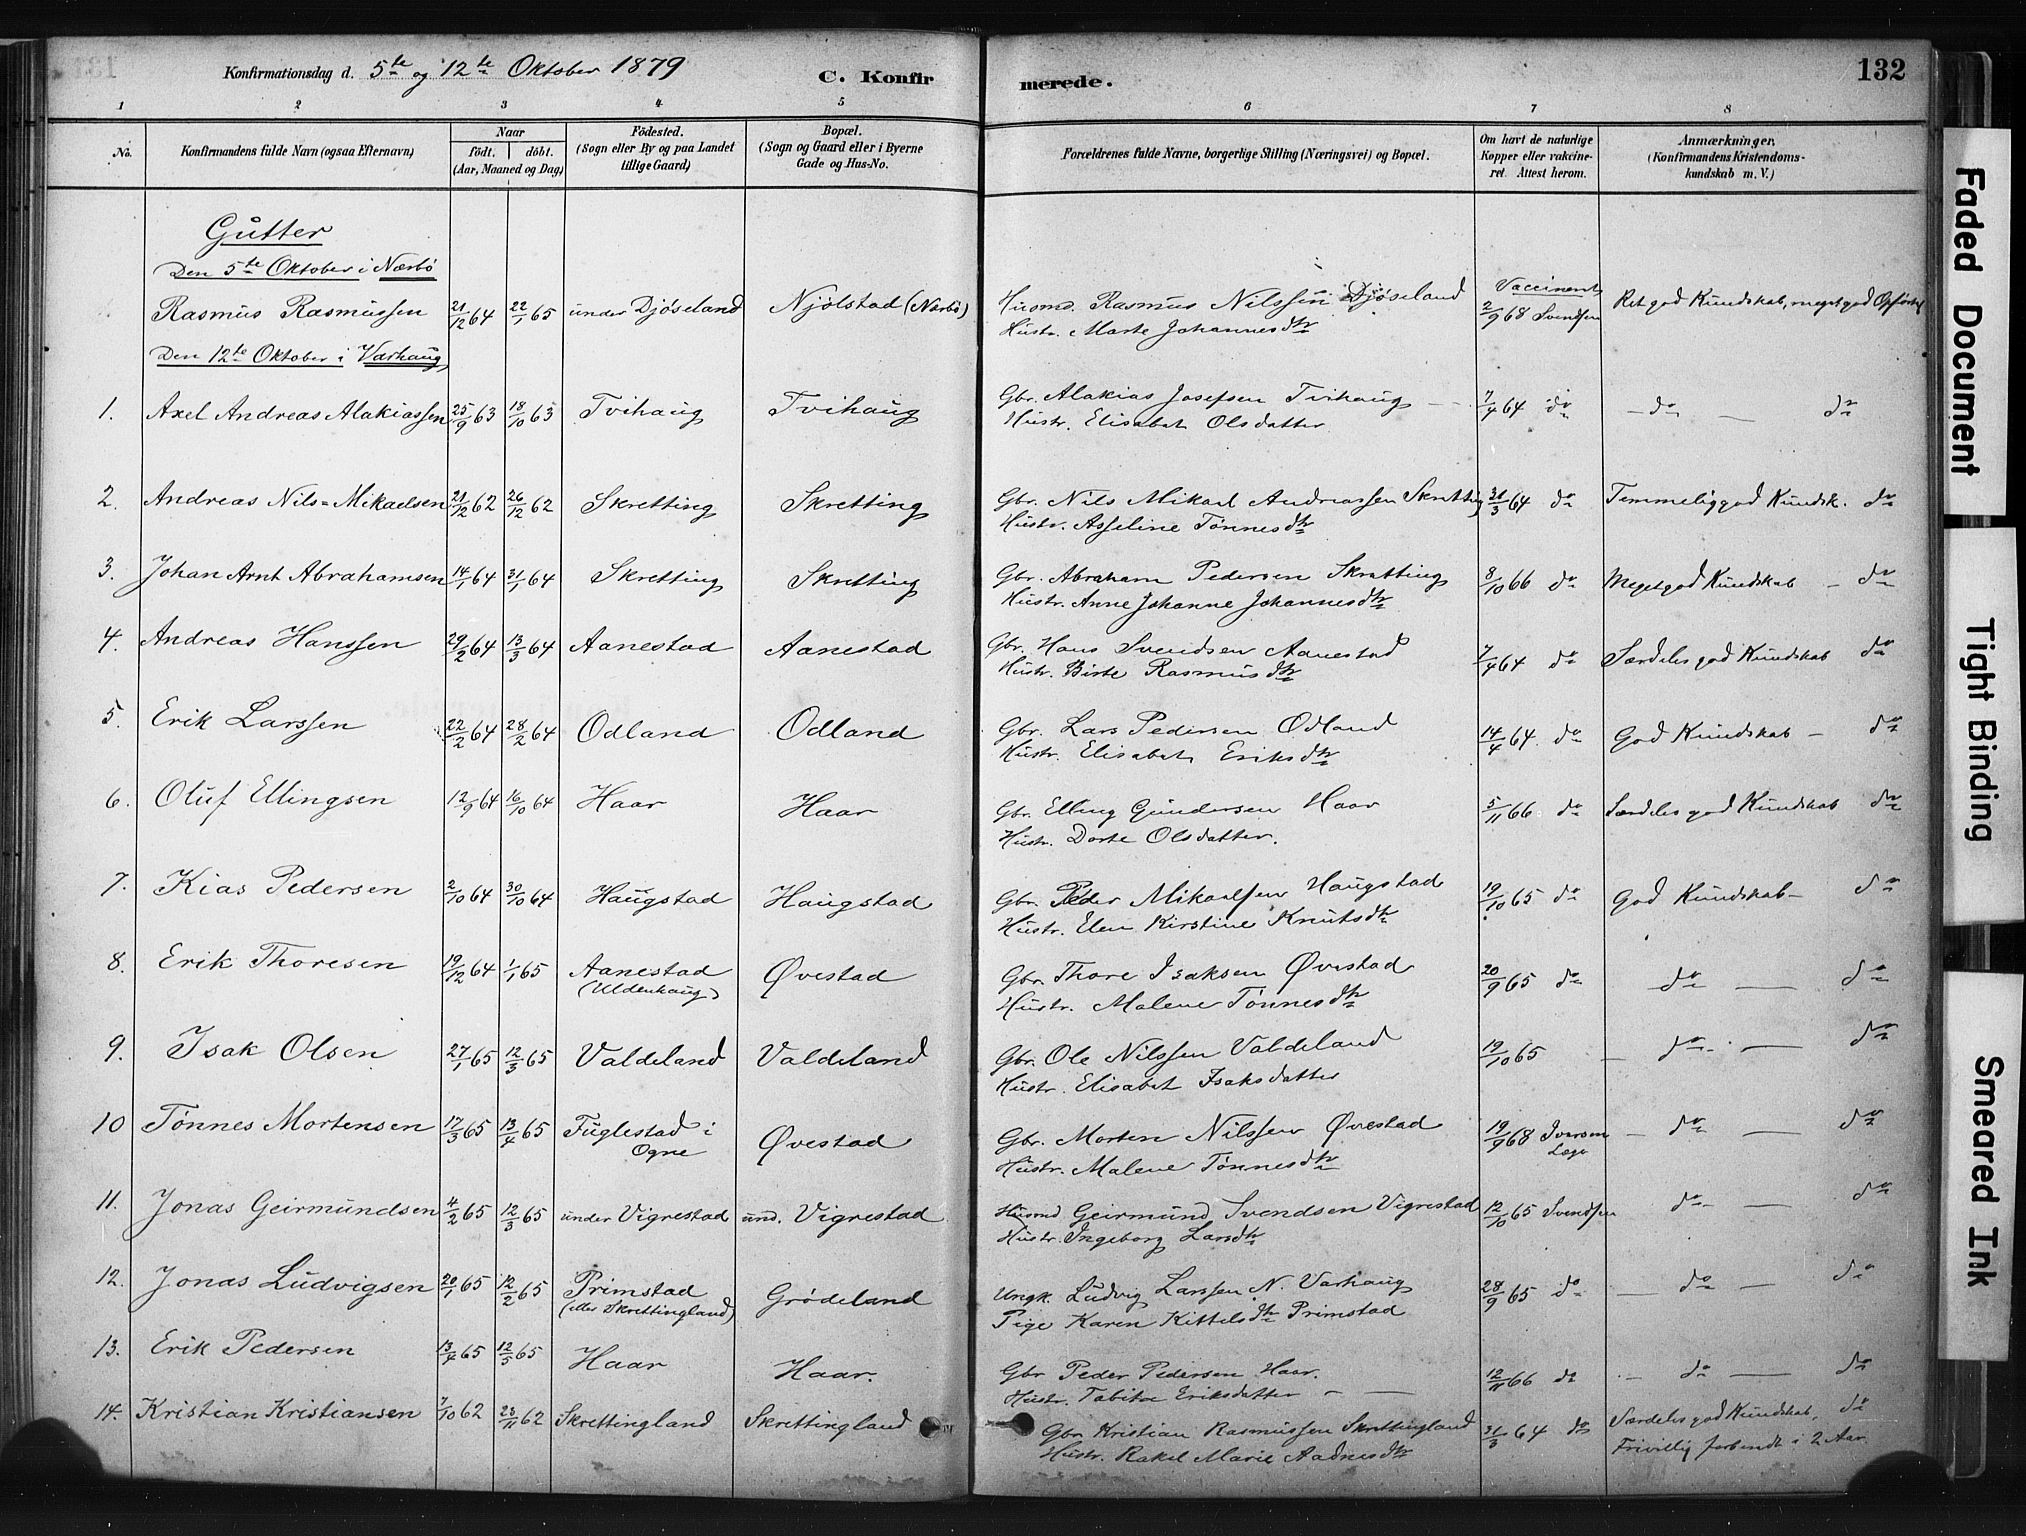 Konfirmationsdag d. 5te og 12te Oktober 1879
C. Konfir merede.
132
1 2 3 4 5 6 7 8
No.
Konfirmandens fulde Navn (ogsaa Efternavn)
Naar
födt. döbt.
(Aar, Maaned og Dag)
Födested.
(Sogn eller By og paa Landet
tillige Gaard)
Bopæl.
(Sogn og Gaard eller i Byerne
Gade og Hus-No.
Forældrenes fulde Navne, borgerlige Stilling (Næringsvei) og Bopæl.
Om havt de naturlige
Kopper eller vakcine-
ret. Attest herom.
Anmærkninger.
(Konfirmandens Kristendoms-
kundskab m. V.)
Gutter
Den 5te Oktober i Nærbö
Rasmus Rasmussen 21/12 64 22/1 65 under Djöseland Njölstad (Nærbö) Husmd. Rasmus Nilssen Djöseland Vaccineret 2/9 68 Svendsen Ret god Kundskab, meget god Opförsel
Hustr. Marte Johannesdtr
Den 12te Oktober i Varhaug
1. Axel Andreas Alakiassen 25/9 63 18/10 63 Tvihaug Tvihaug Gbr. Alakias Josefsen Tvihaug 7/4 64 do do do
Hustr. Elisabet Olsdatter
2. Andreas Nils=Mikaelsen 21/12 62 26/12 62 Skretting Skretting Gbr. Nils Mikael Andreassen Skretting 31/3 64 do Temmelig god Kundsk. do
Hustr. Asseline Tönnesdtr
3. Johan Arnt Abrahamsen 14/1 64 31/1 64 Skretting Skretting Gbr. Abraham Pedersen Skretting 8/10 66 do Meget god Kundskab - do
Hustr. Anne Johanne Johannesdtr
4. Andreas Hanssen 29/2 64 13/3 64 Aanestad Aanestad Gbr. Hans Svendsen Aanestad 7/4 64 do Særdeles god Kundskab do
Hustr. Birte Rasmusdtr
5. Erik Larssen 22/2 64 28/2 64 Odland Odland Gbr. Lars Pedersen Odland 14/4 64 do God Kundskab - do
Hustr. Elisabet Eriksdtr
6. Oluf Ellingsen 12/9 64 16/10 64 Haar Haar Gbr. Elling Gundersen Haar 5/11 66 do Særdeles god Kundskab do
Hustr. Dorte Olsdatter.
7. Kias Pedersen 2/10 64 30/10 64 Haugstad Haugstad Gbr. Peder Mikaelsen Haugstad 19/10 65 do God Kundskab - do
Hustr. Elen Kirstine Knutsdtr
8. Erik Thoresen 19/12 64 1/1 65 Aanestad Øvestad Gbr. Thore Isaksen Øvestad 20/9 65 do do do
(Uldenhaug) Hustr. Malene Tönnesdtr
9. Isak Olsen 27/1 65 12/3 65 Valdeland Valdeland Gbr. Ole Nilssen Valdeland 19/10 65 - do do
Hustr. Elisabet Isaksdatter
10 Tönnes Mortensen 17/3 65 13/4 65 Fuglestad i Øvestad Gbr. Morten Nilssen Øvestad 19/9 68 Iversen - do do
Ogne Hustr. Malene Tönnesdtr Læge
11. Jonas Geirmundsen 4/2 65 12/3 65 under Vigrestad und. Vigrestad Husmd Geirmund Svendsen Vigrestad 12/10 65 Svendsen do do
Hustr. Ingeborg Larsdtr
12. Jonas Ludvigsen 20/1 65 12/2 65 Primstad Grödeland Ungk. Ludvig Larssen N. Varhaug 28/9 65 do do do
(eller Skrettingland) Pige Karen Kittelsdtr Primstad
13. Erik Pedersen 13/4 65 12/5 65 Haar Haar. Gbr Peder Pedersen Haar. 12/11 66 do do do
Hustr. Tabita Eriksdatter
14. Kristian Kristiansen 7/10 62 23/11 62 Skrettingland Skrettingland Gbr Kristian Rasmussen Skrettingland 31/3 64 do Særdeles god Kundskab, do
Hustr. Rakel Marie Aadnesdtr Frivillig forberedt i 2 Aar.
Faded Document
Tight Binding
Smeared Ink